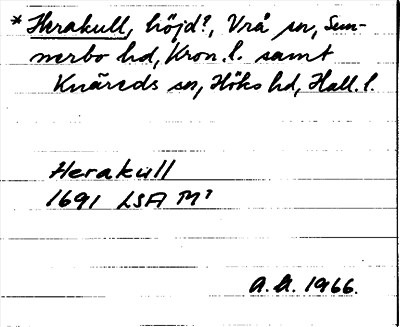 * Herakull, höjd?, Vrå sn, Sun-
nerbo hd, Kron. l. samt
Knäreds sn, Höks hd, Hall. l.
Herakull
1691 LSA M?
A.A. 1966.